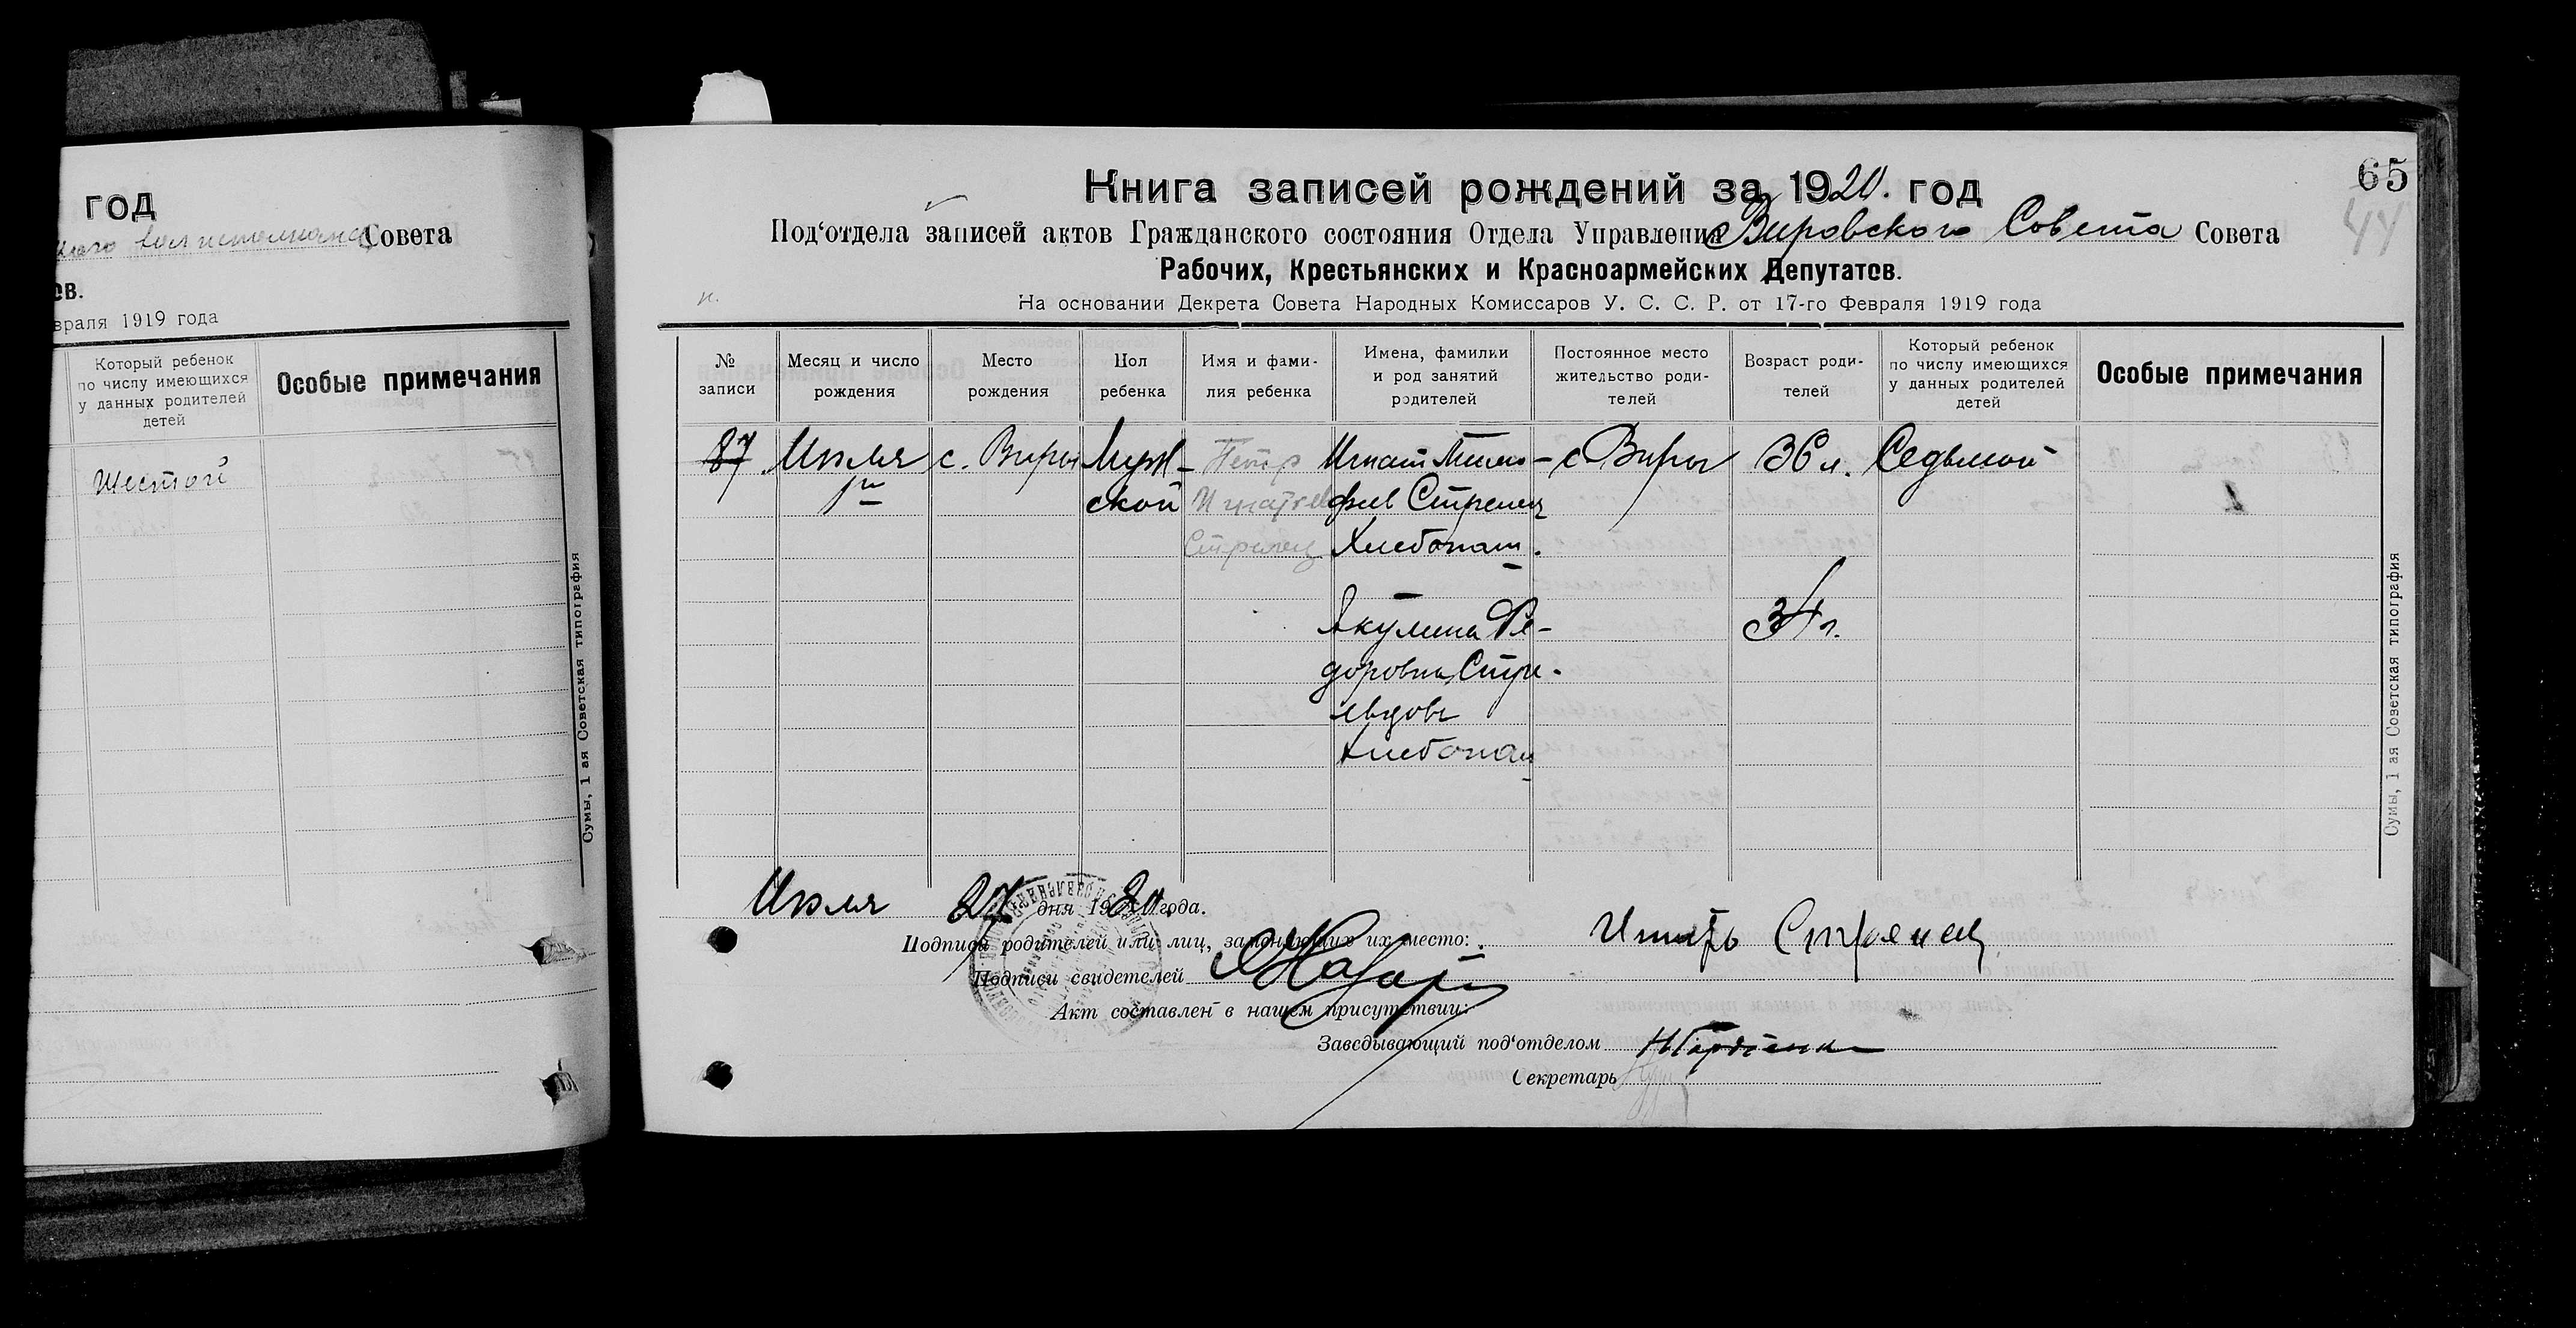 год
Совета
ов.
враля 1919 года
Который ребенок
по числу имеющихся
у данных родителей
детей
Особые примечания
Шестой
Сумы, 1 ая Советская типография
65
44
Книга записей рождений за 1920. год
Под‘отдела записей актов Гражданского состояния Отдела Управления Вировского Совета Совета
Рабочих, Крестьянских и Красноармейских Депутатов.
На основании Декрета Совета Народных Комиссаров У. С. С. Р. от 17-го Февраля 1919 года
№ записи
Месяц и число рождения
Место рождения
Пол ребенка
Имя и фами-
лия ребенка
Имена, фамилии
и род занятий
родителей
Постоянное место
жительство роди-
телей
Возраст роди-
телей
Который ребенок
по числу имеющихся
у данных родителей
детей
Особые примечания
87 Июля с. Виры Муж- Петр Игнат Тимо- с Виры 36 л. Седьмой
1го ской Игнатьев фиев Стрелец
Стрелец Хлебопаш.
Акулина Фе- 34 г.
доровна Стре-
льцова
Хлебопаш
Сумы, 1 ая Советская типография
Июля 27 дня 1920 года.
Подписи родителей или лиц, заменяющих их место: Игнатъ Стрелец
Подписи свидетелей
Акт составлен в нашем присутствии:
Заведывающий под‘отделом
Секретарь